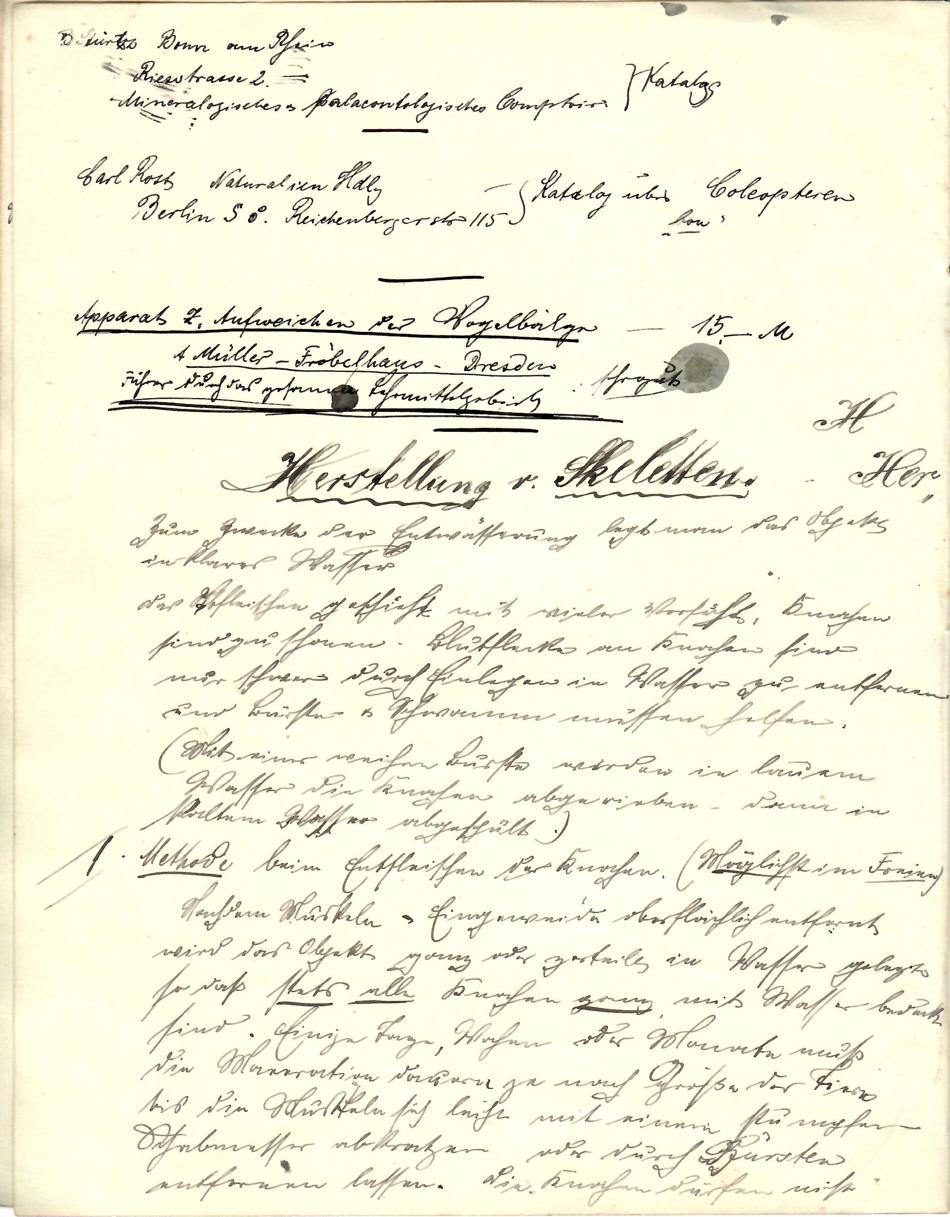 B Stürtz Bonn am Rhein
Riesstrasse 2.
Mineralogisches u. Palaeontologisches Comptoir } Katalog
Carl Rost Naturalien Hdlg
Berlin S O. Reichenbergerstr 115 } Katalog über Coleopteren
Apparat z. Aufweichen der Vogelbälge — 15.— M
A Müller – Fröbelhaus – Dresden
Führer durch das gesamte Lehrmittelgebiet
H
Herstellung v. Skeletten.
Her
Zum Zwecke der Entwässerung legt man das Objekt
in klares Wasser
das Abfleischen geschieht mit vieler Vorsicht, Knochen
sind zu schonen. Blutflecke an Knochen sind
nur schwer durch Einlegen in Wasser zu entfernen
und Bürste & Schwamm müssen helfen.
(Mit einer weichen Bürste werden in lauem
Wasser die Knochen abgerieben – dann in
kaltem Wasser abgespült.)
1. Methode beim Entfleischen der Knochen. (Möglichst im Freien)
Nachdem Muskeln u. Eingeweide oberflächlich entfernt
wird das Objekt ganz oder zerteilt in Wasser gelegt
so daß stets alle Knochen ganz mit Wasser bedeckt
sind. Einige Tage, Wochen oder Monate muß
die Mazeration dauern je nach Größe der Tiere
bis die Muskeln sich leicht mit einem stumpfen
Schabmesser abkratzen oder durch Bürsten
entfernen lassen. Die Knochen dürfen nicht